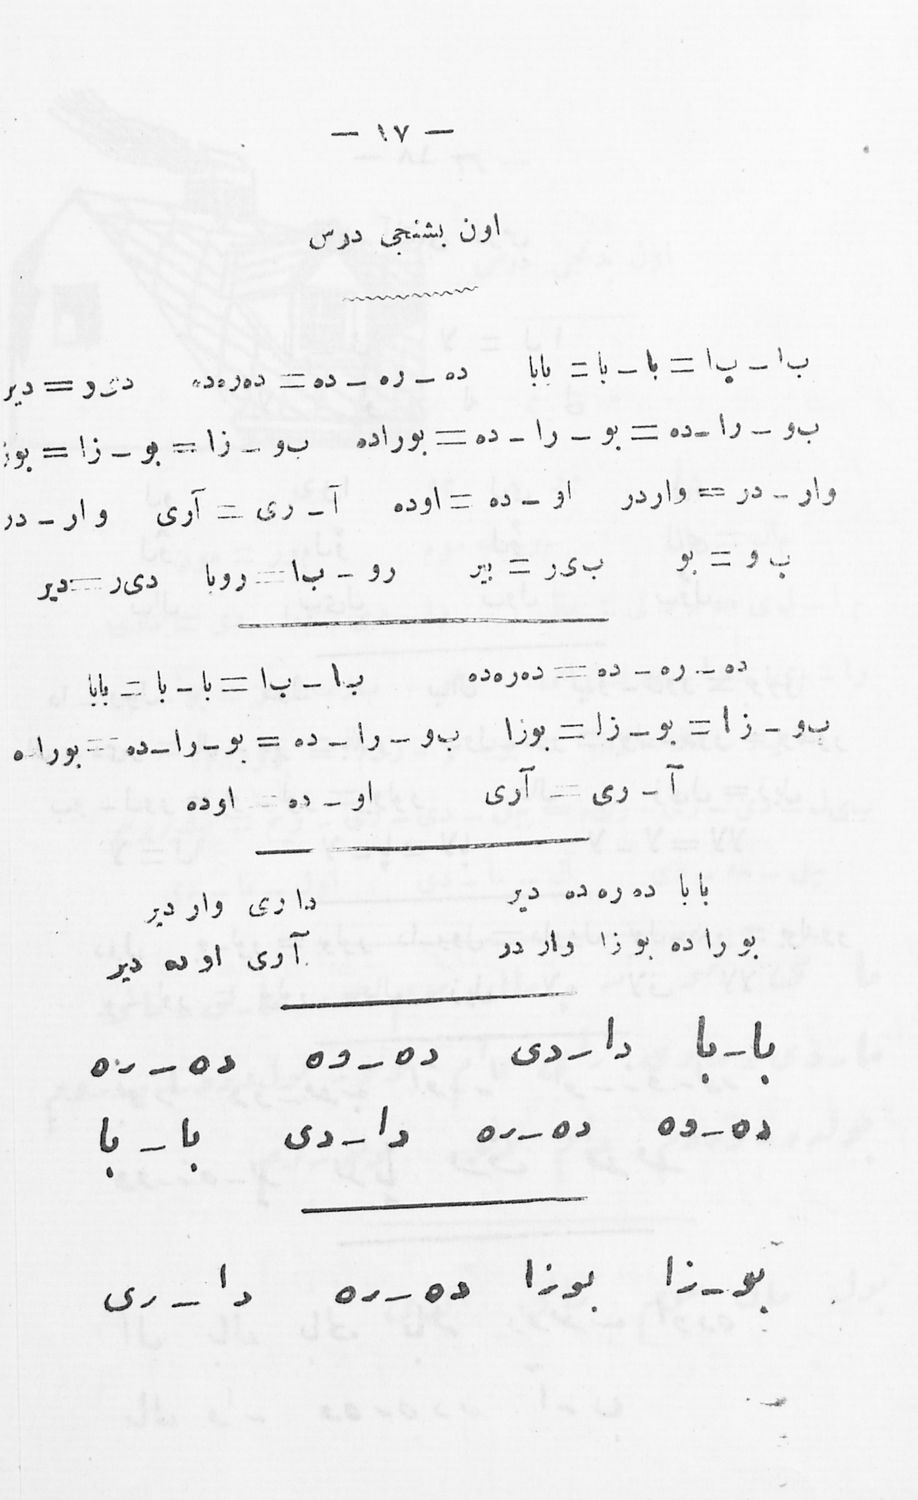 — ١٧ —
اون بشنجی درس
ب‍ا ـ ب‍ا = با ـ با = بابا ده ـ ره ـ ده = ده‌ره‌ده دی‍ر = دیر
ب‍و ـ را ـ ده = بو ـ را ـ ده = بوراده ب‍و ـ زا = بو ـ زا =
وار ـ در = واردر او ـ ده = اوده آ ـ ری = آری وار ـ در
ب‍ و = بو ب‍ی‍ر = بیر رو ـ ب‍ا = روبا دی‍ر = دیر
ده ـ ره ـ ده = ده‌ره‌ده ب‍ا ـ ب‍ا = با ـ با = بابا
ب‍و ـ زا = بو ـ زا = بوزا ب‍و ـ را ـ ده = بو ـ را ـ ده = بوراده
آ ـ ری = آری او ـ ده = اوده
بابا ده ره ده دیر داری وار دیر
بو را ده بو زا وار در آری او ده دیر
با ـ با دا ـ ردی ده ـ وه ده ـ ره
ده ـ وه ده ـ ره دا ـ ردی با ـ با
بو ـ زا بوزا ده ـ ره دا ـ ری